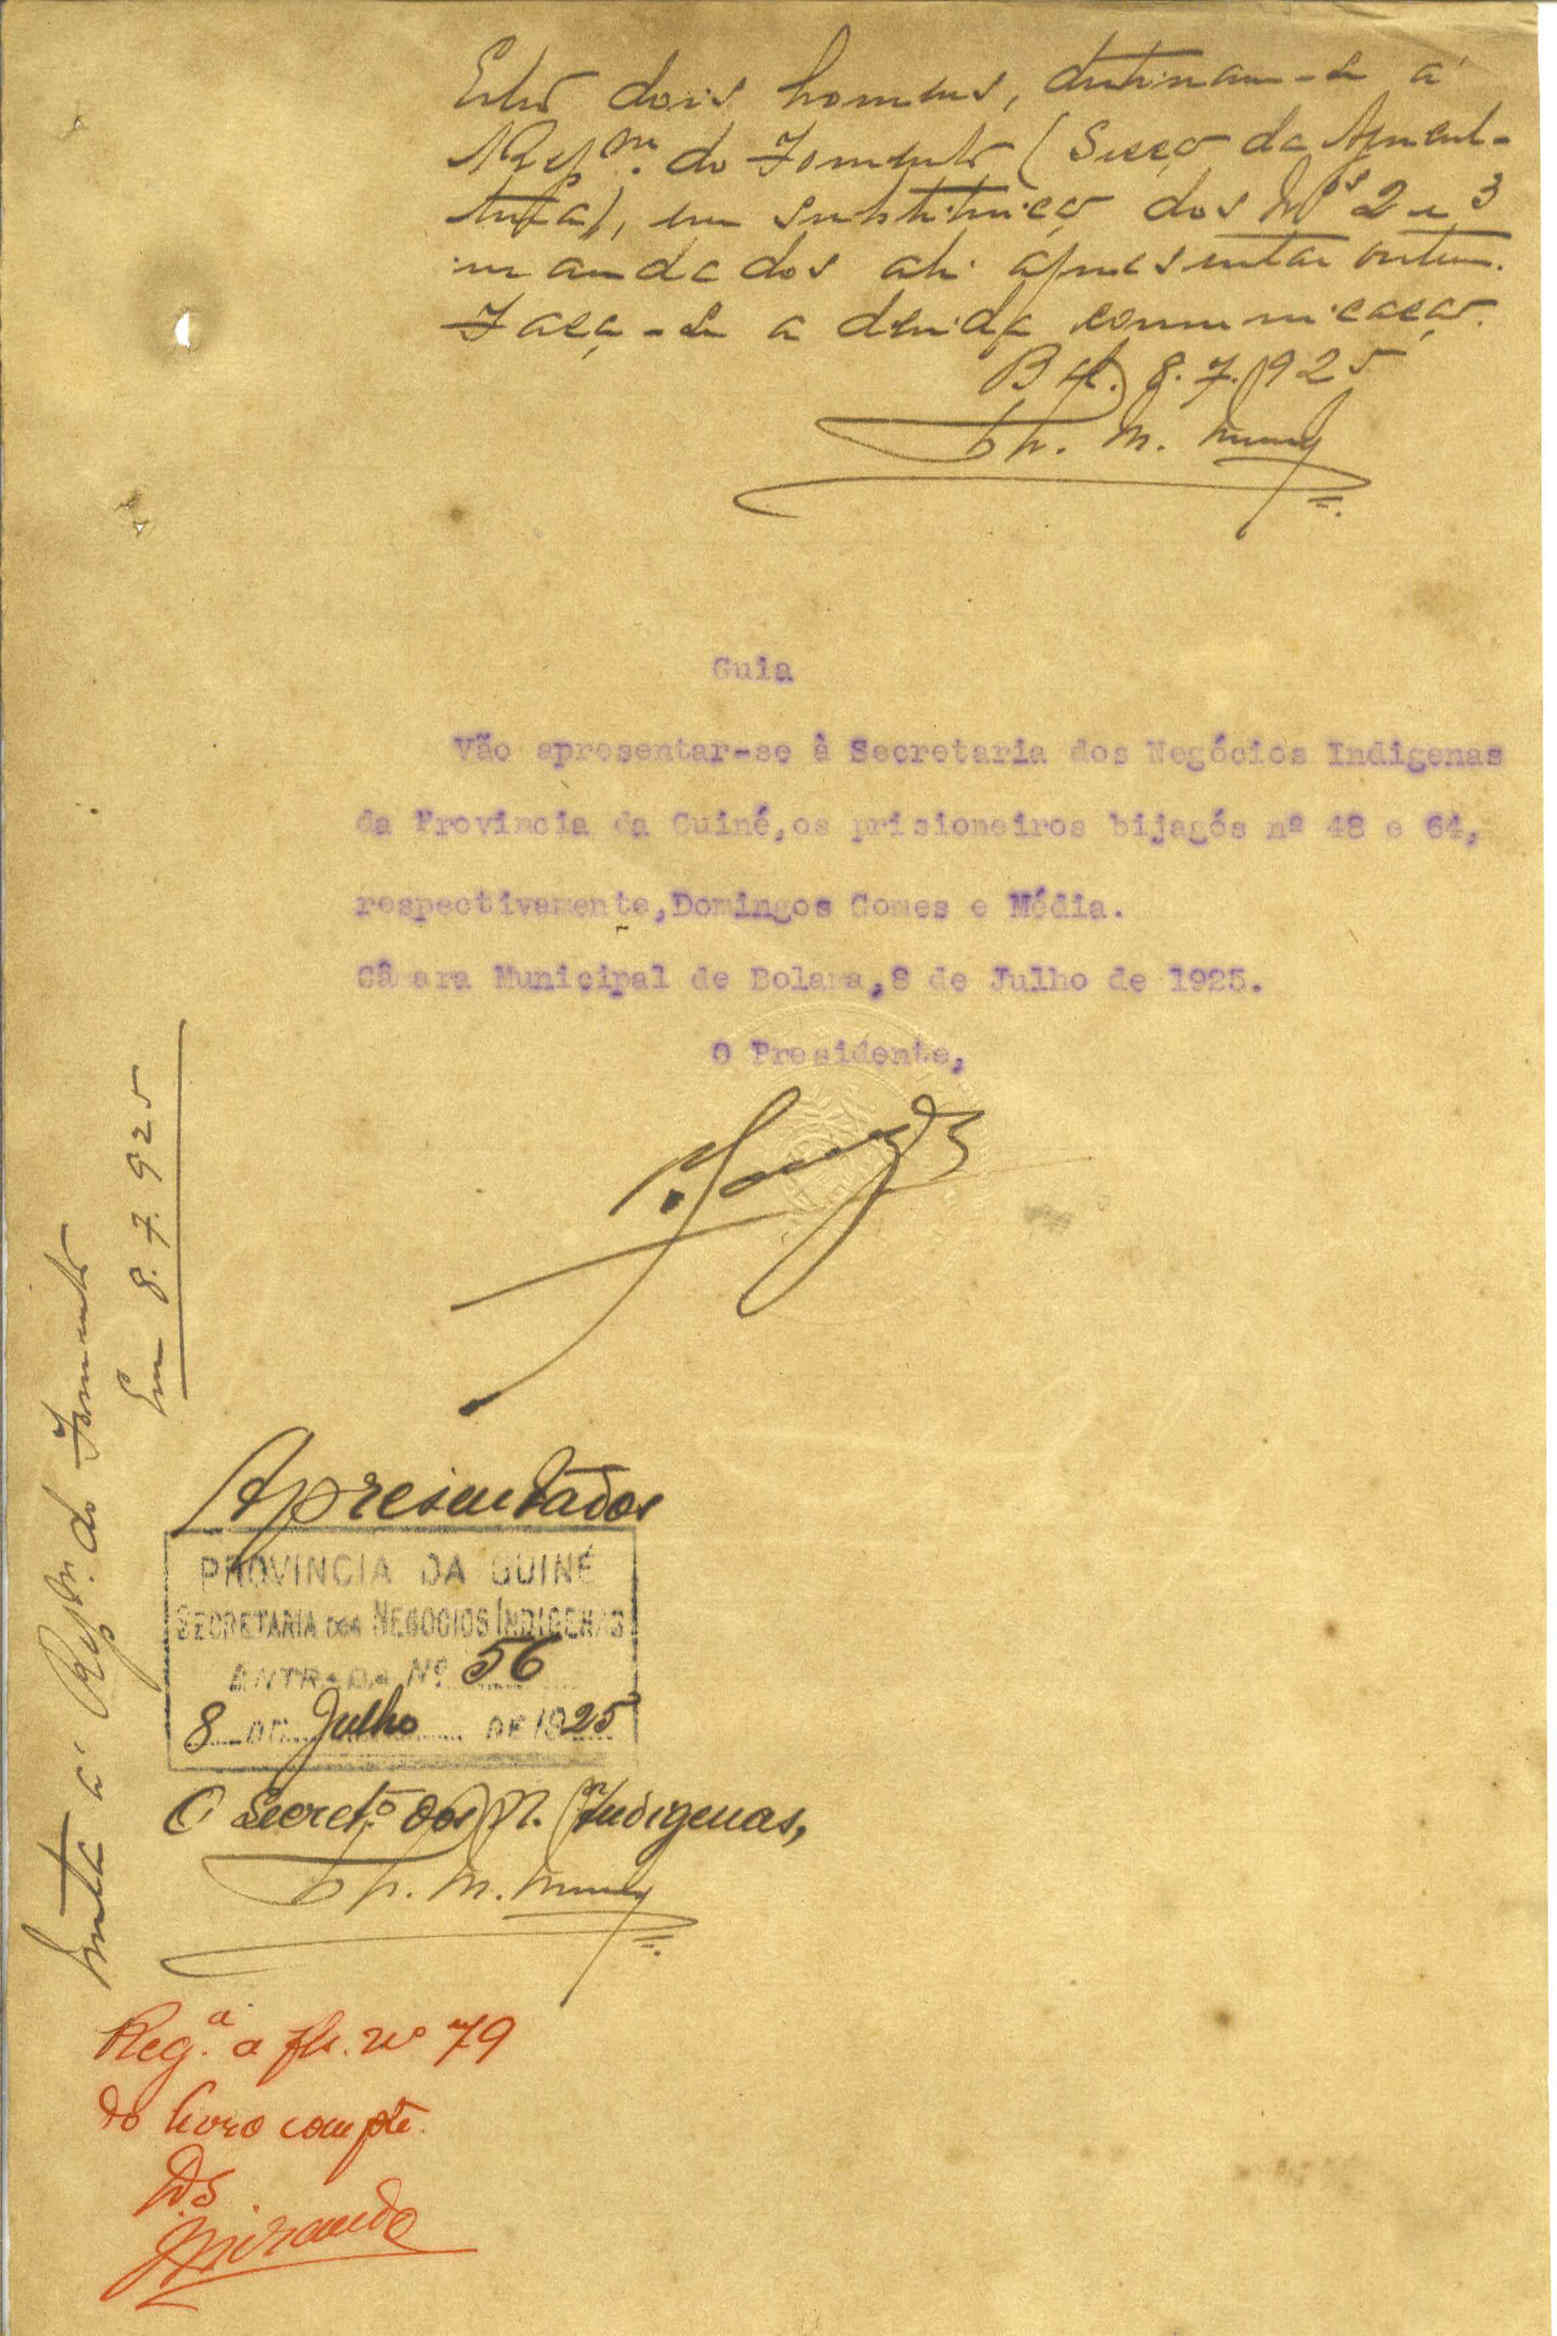 Estes dois homens, destinam-se á
Repm. do Fomento (Secção da Agricul-
tura), em substituição dos Nos 2 e 3
mandados ali apresentar ontem.
Faça-se a devida comunicação.
Bol. 8.7.925
M.
Guia
Vão apresentar-se à Secretaria dos Negócios Indigenas
da Provincia da Guiné,os prisioneiros bijagós nº 48 e 64,
respectivamente,Domingos Gomes e Média.
Câmara Municipal de Bolama,8 de Julho de 1925.
O Presidente,
á Repm. do Fomento
Em 8.7.925
Apresentados
PROVINCIA DA GUINÉ
SECRETARIA DOS NEGOCIOS INDIGENAS
ENTRADA Nº 56
8 DE Julho DE 1925
O Secretº dos N. Indigenas,
M.
Reg.a a fls. nº 79
do livro compte.
DS
Miranda